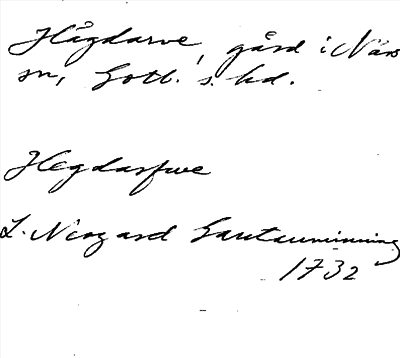 Hågdarve, gård i När
sn, Gotl. s. hd.
Hegdarfwe
L. Nizgard Gautauminning
1732